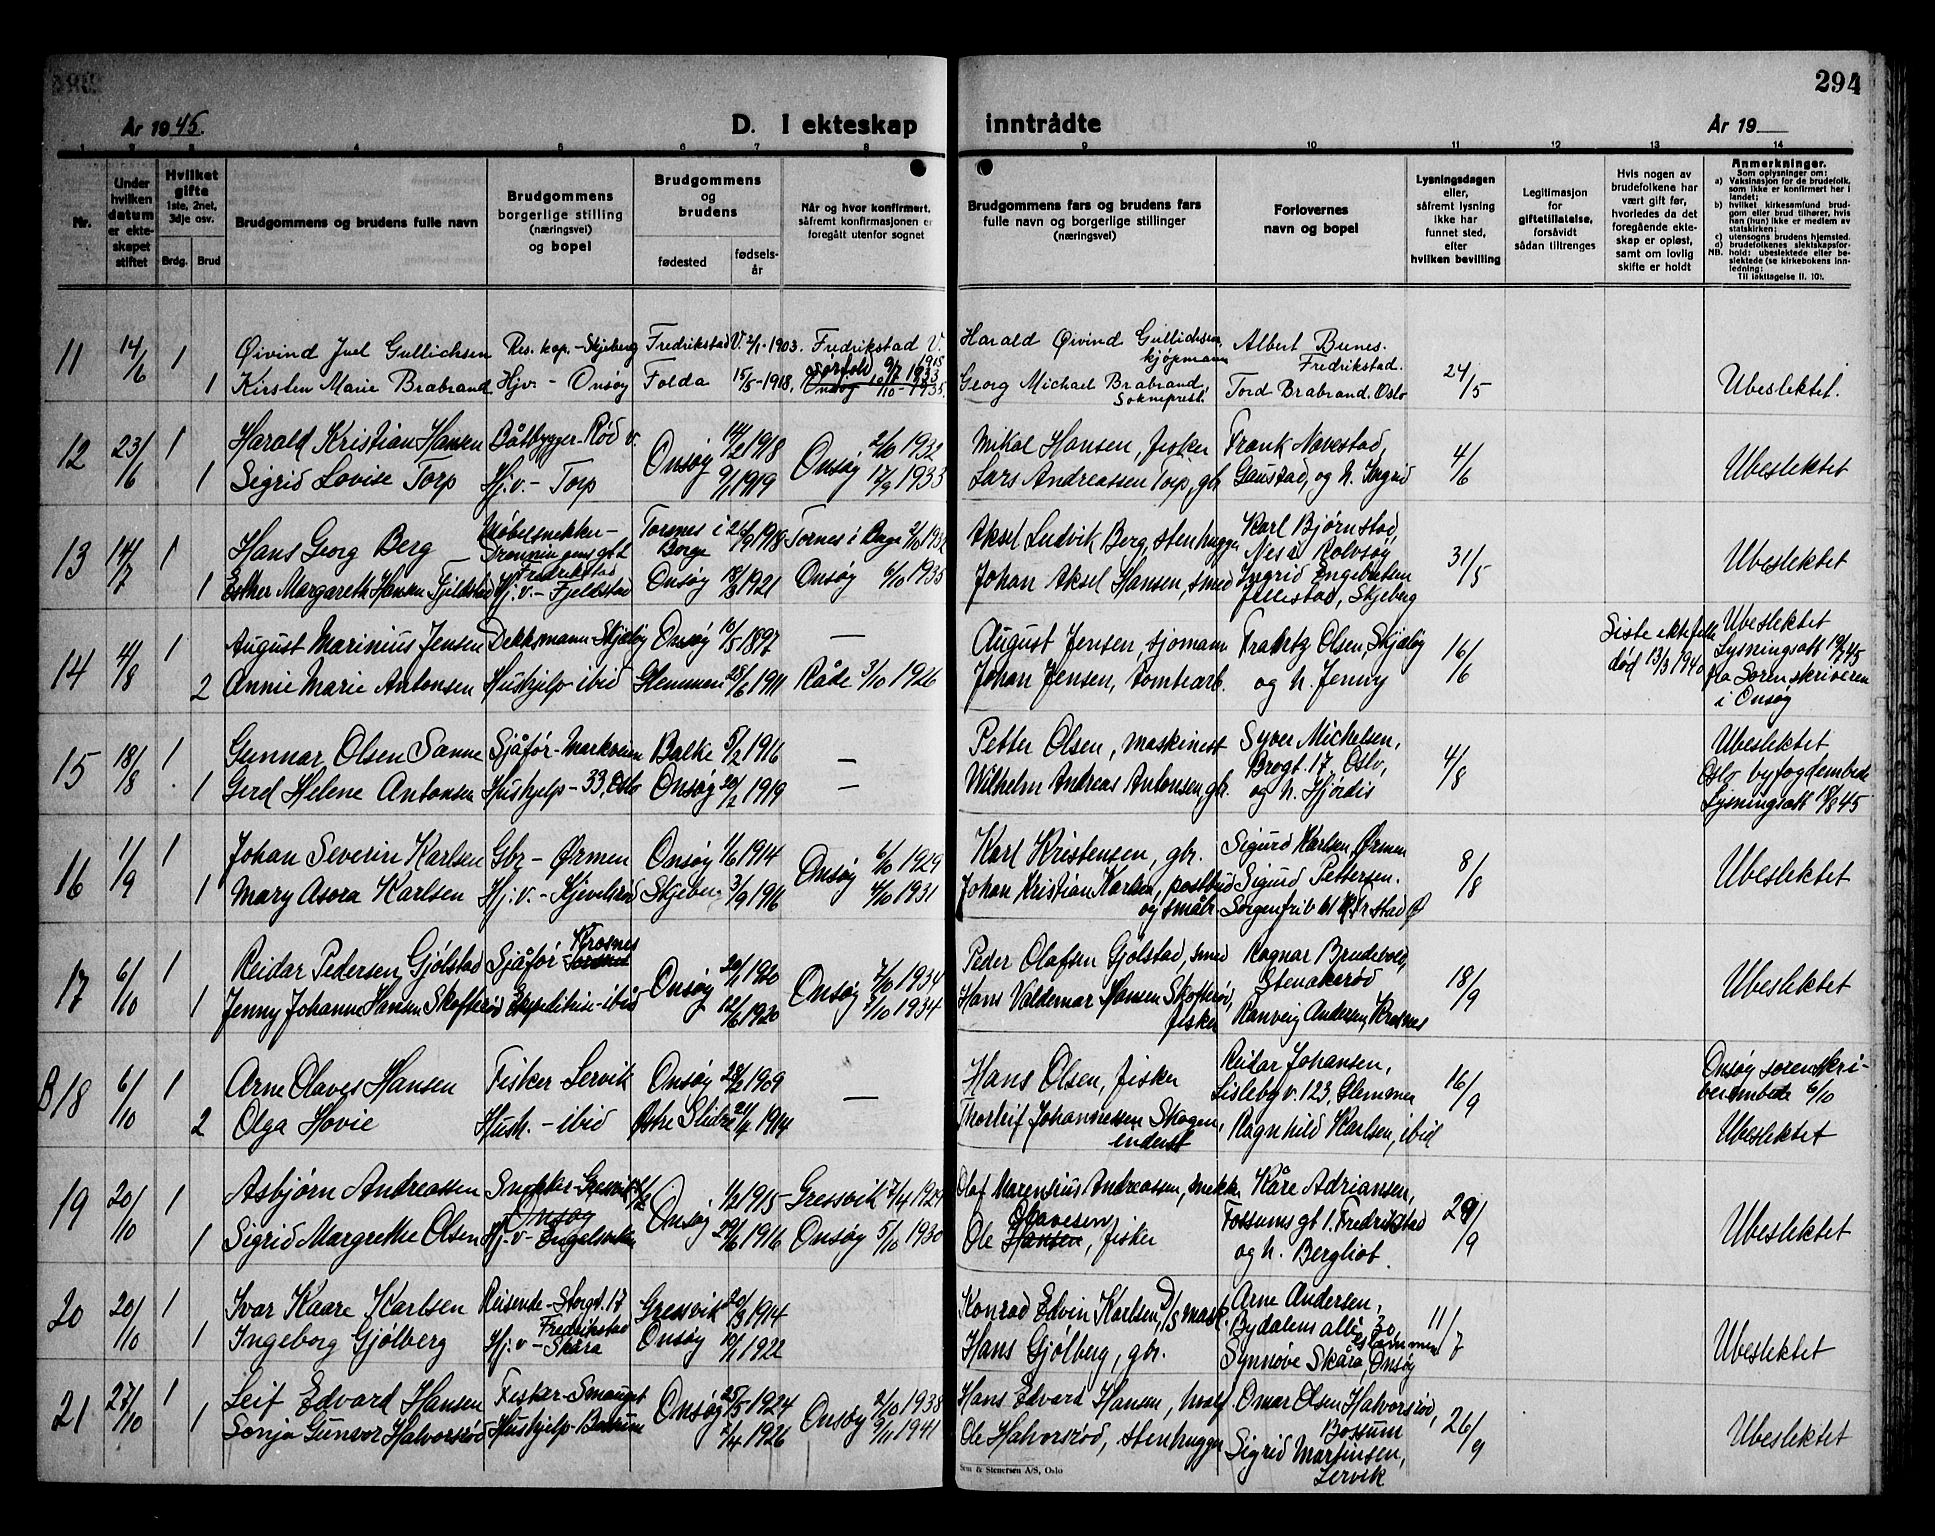 294
År 1945.
D. I ekteskap inntrådte
År 19
1 2 3 4 5 6 7 8 9 10 11 12 13 14
Nr.
Under hvilken datum er ekteskapet stiftet
Hvilket gifte 1ste, 2net, 3dje osv.
Brdg. Brud
Brudgommens og brudens fulle navn
Brudgommens borgerlige stilling (næringsvei) og bopel
Brudgommens og brudens
fødested
fødselsår
Når og hvor konfirmert, såfremt konfirmasjonen er foregått utenfor sognet
Brudgommens fars og brudens fars fulle navn og borgerlige stillinger (næringsvei)
Forlovernes navn og bopel
Lysningsdagen eller, såfremt lysning ikke har funnet sted, efter hvilken bevilling
Legitimasjon for giftetillatelse, forsåvidt sådan tiltrenges
Hvis nogen av brudefolkene har vært gift før, hvorledes da det foregående ekteskap er opløst, samt om lovlig skifte er holdt
Anmerkninger.
Som oplysninger om:
a) Vaksinasjon for de brudefolk, som ikke er konfirmert her i landet;
b) hvilket kirkesamfund brudgom eller brud tilhører, hvis han (hun) ikke er medlem av statskirken;
c) utensogns brudens hjemsted.
d) brudefolkenes slektskapsforhold: ubeslektede eller beslektede (se kirkebokens innledning:
NB. Til iakttagelse II. 10).
11 14/6 1 Øivind Juel Gullichsen Res. kap. - Skjeberg Fredrikstad V. 2/1-1903. Fredrikstad V. 1918 Harald Øivind Gullichsen, kjøpmann Albert Bunes. Fredrikstad. 24/5 Ubeslektet.
1 Kirsten Marie Brabrand Hjv. - Onsøy Folda 15/5-1918. Sørfold 9/7 1933 Onsøy 10-1935. Georg Michael Brabrand, Sokneprest. Tord Brabrand. Oslo
12 23/6 1 Harald Kristian Hansen Båtbygger-Rød v. Onsøy 14/2 1918 Onsøy 2/10 1932 Mikal Hansen, fisker Frank Navestad, 4/6 Ubeslektet
1 Sigrid Lovise Torp Hj.v. - Torp 9/1 1919 17/9 1933 Lars Andreassen Torp, gbr. Gaustad, og h. Ingrid
13 14/7 1 Hans Georg Berg Møbelsnekker - Dronningensgt. Fredrikstad Tornes i Borge 26/9 1918 Tornes i Borge 2/10 1932 Aksel Ludvik Berg, stenhugger Karl Bjørnstad, Nes i Rolvsøy 31/5 Ubeslektet
1 Esther Margareth Hansen Fjeldstad Hj.v. - Fjeldstad Onsøy 18/3 1921 Onsøy 6/10 1935 Johan Aksel Hansen, smed Ingrid Engebretsen Jellestad, Skjeberg
14 4/8 1 August Marinius Jensen Dekksmann - Skjæløy Onsøy 10/5 1897 — August Jensen, sjømann Frantz Olsen, Skjæløy 16/6 Siste ektefelle død 13/3 1940 Ubeslektet Lysningsatt 19/7 45
2 Annie Marie Antonsen Hushjelp ibid Glemmen 28/6 1911 Råde 3/10 1926 Johan Jensen, tomtearb. og h. Jenny fra Sorenskriveren i Onsøy
15 18/8 1 Gunnar Olsen Sanne Sjåfør - Markveien Balke 5/2 1916 — Petter Olsen, maskinist Syver Michelsen, 4/8 Ubeslektet
1 Gerd Helene Antonsen Hushjelp - 33, Oslo Onsøy 20/2 1919 — Wilhelm Andreas Antonsen, gbr. Brogt. 17, Oslo, og h. Hjørdis Oslo byfogdembede Lysningsatt 18/8 45
16 1/9 1 Johan Severin Karlsen Gbr - Ørmen Onsøy 1/6 1914 Onsøy 6/10 1929 Karl Kristensen, gbr. Sigurd Karlsen Ørmen 8/8 Ubeslektet
1 Mary Asora Karlsen Hj.v. - Kjevelsrød Skjeberg 3/9 1916 4/10 1931 Johan Kristian Karlsen, postbud og småbr. Sigurd Pettersen.
17 6/10 1 Reidar Pedersen Gjølstad Sjåfør - Krosnes Onsøy 20/1 1920 Onsøy 7/10 1934 Peder Olafsen Gjølstad, smed Ragnar Brudevold, Stenakerød 18/9 Ubeslektet
1 Jenny Johanne Hansen Skofterød Expeditrise - ibid 12/6 1920 7/10 1934 Hans Valdemar Hansen Skofterød, fisker Ranveig Andersen, Krosnes
B 18 6/10 1 Arne Olaves Hansen Fisker Lervik Onsøy 28/2 1909 — Hans Olsen, fisker Reidar Johansen, Lisleby v. 123, Glemmen 16/9 Onsøy sorenskriverembede 6/10
2 Olga Hovie Hush. - ibid Østre Slidre 21/4 1914 Thorleif Johannessen Skogen, inderst Ragnhild Karlsen, ibid Ubeslektet
19 20/10 1 Asbjørn Andreassen Snekker - Gressvik Onsøy 1/2 1915 - Gressvik 17/4 1929 Olaf Marensius Andreassen, snekker Kåre Adriansen, 29/9 Ubeslektet
1 Sigrid Margrethe Olsen Hj.v - Engelsviken Onsøy 29/6 1916 Onsøy 5/10 1930 Ole Hansen Olavesen, fisker Fossumsgt 1. Fredrikstad og h. Bergliot.
20 20/10 1 Ivar Kaare Karlsen Reisende - Storgt. 17 Fredrikstad Gressvik 20/3 1914 Konrad Edvin Karlsen, D/S mask. Arne Andersen, Bydalens allè 30 Glemmen 11/7 Ubeslektet
1 Ingeborg Gjølberg Hj.v - Skåra Onsøy 10/1 1922 Hans Gjølberg, gbr. Synnøve Skåra, Onsøy
21 27/10 1 Leif Edvard Hansen Fisker - Smauget Onsøy 25/5 1924 Onsøy 2/10 1938 Hans Edvard Hansen, Omar Olsen Halvorsrød, Bossum 26/9 Ubeslektet
1 Sonja Gunvor Halvorsrød Hushjelp - Bossum 2/4 1926 9/11 1941 Ole Halvorsrød, stenhugger Sigrid Martinsen, Lervik
Sem & Stenersen A/S, Oslo